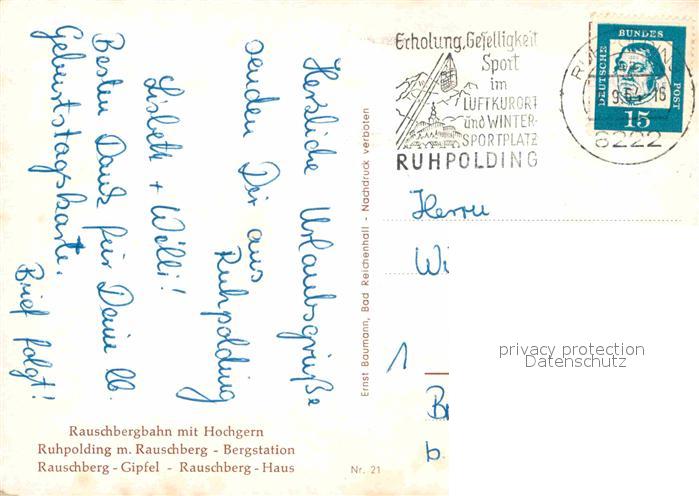 Herzliche Urlaubsgrüße
senden Dir aus
Ruhpolding
Lisbeth + Wölli!
Besten Dank für Deine lb.
Geburtstagskarte.
Brief folgt!
Rauschbergbahn mit Hochgern
Ruhpolding m. Rauschberg - Bergstation
Rauschberg - Gipfel - Rauschberg - Haus
Nr. 21
Ernst Baumann, Bad Reichenhall - Nachdruck verboten
Erholung, Geselligkeit
Sport
im
LUFTKURORT
und WINTER-
SPORTPLATZ
RUHPOLDING
DEUTSCHE
BUNDES
POST
15
8222
Herrn
Wi
1
b.
privacy protection
Datenschutz